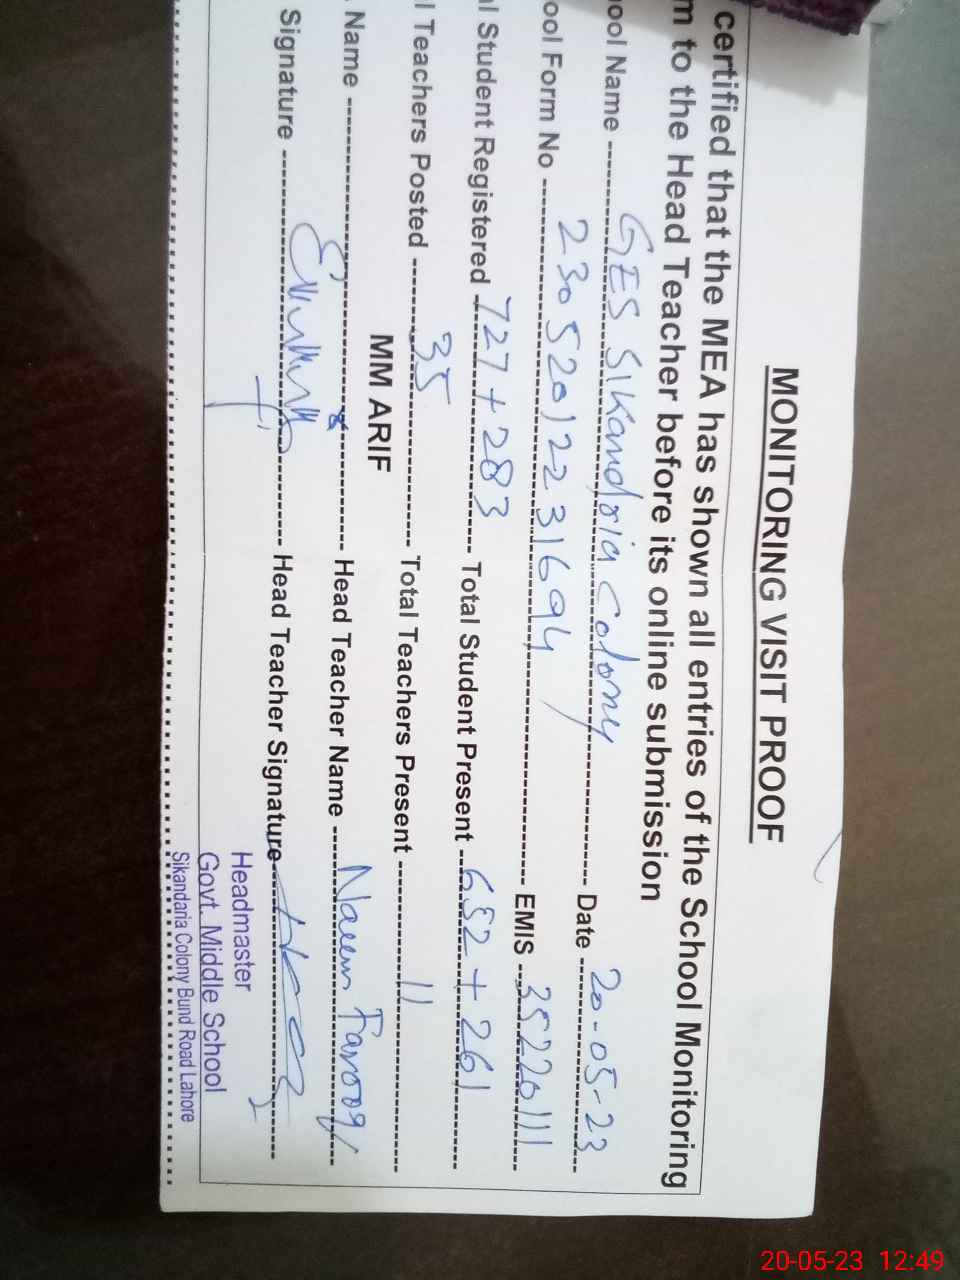 MONITORING VISIT PROOF
certified that the MEA has shown all entries of the School Monitoring
m to the Head Teacher before its online submission
ool Name GES Sikandria Colony Date 20-05-23
ool Form No 23052012231694 EMIS 35220111
al Student Registered 727 + 283 Total Student Present 652 + 261
l Teachers Posted 35 Total Teachers Present 11
MM ARIF
Name Head Teacher Name Naeem Farooq
Signature Head Teacher Signature
Headmaster
Govt. Middle School
Sikandaria Colony Bund Road Lahore
20-05-23 12:49